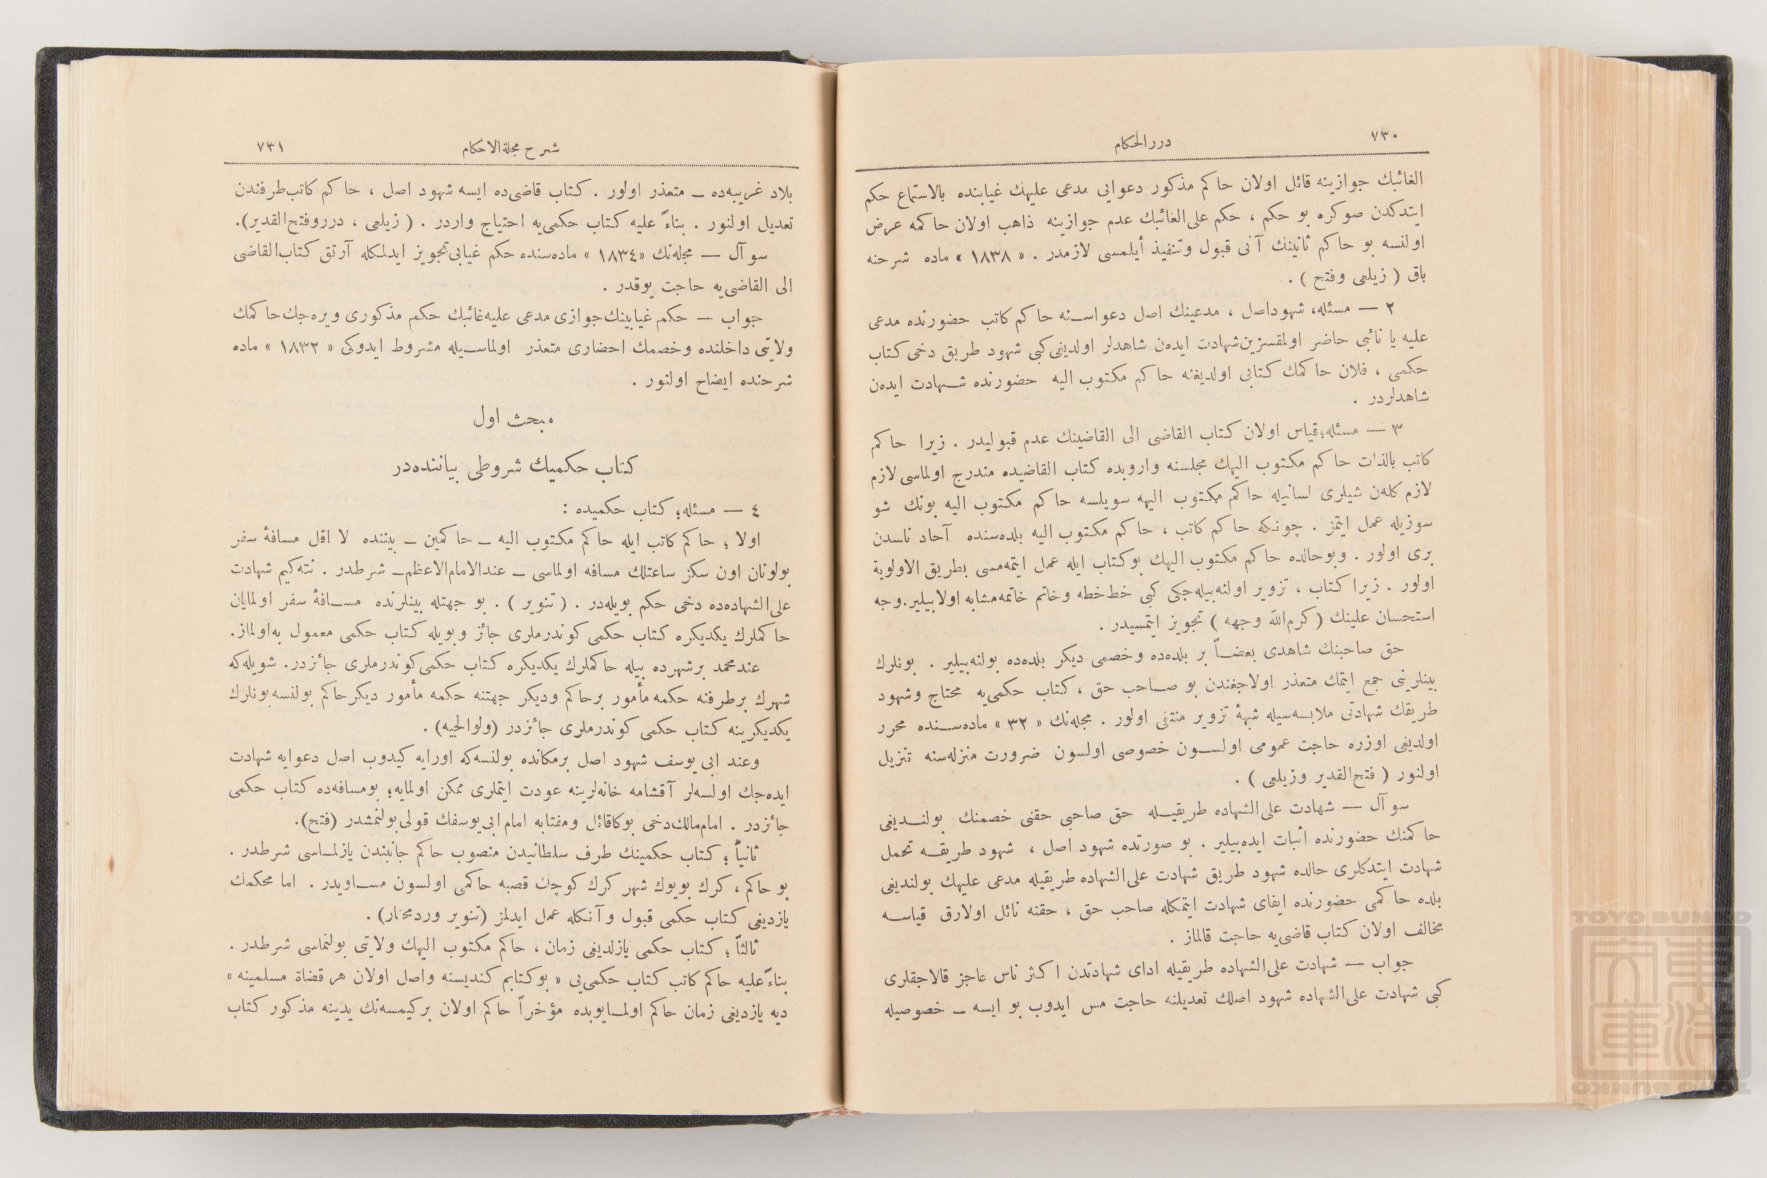 ٧٣٠
درر الحكام
الغائبك جوازينه قائل اولان حاكم مذكور دعوايى مدعى عليهك غيابنده بالاستماع حكم
ايتدكدن صوكره بو حكم ، حكم على الغائبك عدم جوازينه ذاهب اولان حاكمه عرض
اولنسه بو حاكم ثانينك آنى قبول وتنفيذ أيلمسى لازمدر . « ١٨٣٨ » ماده شرحنه
باق ( زيلعى وفتح ) .
٢ — مسئله، شهود اصل ، مدعينك اصل دعواسنه حاكم كاتب حضورنده مدعى
عليه يا نائبى حاضر اولمقسزين شهادت ايدەن شاهدلر اولديغى كبى شهود طريق دخى كتاب
حكمى ، فلان حاكمك كتابى اولديغنه حاكم مكتوب اليه حضورنده شهادت ايدەن
شاهدلردر .
٣ — مسئله؛ قياس اولان كتاب القاضى الى القاضينك عدم قبوليدر . زيرا حاكم
كاتب بالذات حاكم مكتوب اليهك مجلسنه واروبده كتاب القاضيده مندرج اولماسى لازم
لازم كلەن شيلرى لسانيله حاكم مكتوب اليهه سويلسه حاكم مكتوب اليه بونك شو
سوزيله عمل ايتمز . چونكه حاكم كاتب ، حاكم مكتوب اليه بلدەسنده آحاد ناسدن
برى اولور . وبوحالده حاكم مكتوب اليهك بوكتاب ايله عمل ايتمەمسى بطريق الاولوية
اولور . زيرا كتاب ، تزوير اولنەبيلەجكى كبى خط خطه وخاتم خاتمه مشابه اولابيلير. وجه
استحسان علينك ( كرم الله وجهه ) تجويز ايتمسيدر .
حق صاحبنك شاهدى بعضاً بر بلدەده وخصمى ديكر بلدەده بولنەبيلير . بونلرك
بينلرينى جمع ايتمك متعذر اولاجغندن بو صاحب حق ، كتاب حكمى‌يه محتاج وشهود
طريقك شهادتى ملابسەسيله شبهۀ تزوير منتفى اولور . مجلەنك « ٣٢ » مادەسنده محرر
اولديغى اوزره حاجت عمومى اولسون خصوصى اولسون ضرورت منزلەسنه تنزيل
اولنور ( فتح القدير وزيلعى ) .
سوآل — شهادت على الشهاده طريقيله حق صاحبى حقنى خصمنك بولنديغى
حاكمنك حضورنده اثبات ايدەبيلير . بو صورتده شهود اصل ، شهود طريقه تحمل
شهادت ايتدكلرى حالده شهود طريق شهادت على الشهاده طريقيله مدعى عليهك بولنديغى
بلده حاكمى حضورنده ايفاى شهادت ايتمكله صاحب حق ، حقنه نائل اولارق قياسه
مخالف اولان كتاب قاضى‌يه حاجت قالماز .
جواب — شهادت على الشهاده طريقيله اداى شهادتدن اكثر ناس عاجز قالاجقلرى
كبى شهادت على الشهاده شهود اصلك تعديلنه حاجت مس ايدوب بو ايسه — خصوصيله
شرح مجلة الاحكام
٧٣١
بلاد غريبەده — متعذر اولور . كتاب قاضى‌ده ايسه شهود اصل ، حاكم كاتب طرفندن
تعديل اولنور . بناءً عليه كتاب حكمى‌يه احتياج واردر . ( زيلعى ، درر وفتح القدير).
سوآل — مجلەنك «١٨٣٤ » مادەسنده حكم غيابى تجويز ايدلمكله آرتق كتاب القاضى
الى القاضى‌يه حاجت يوقدر .
جواب — حكم غيابينك جوازى مدعى عليه غائبك حكم مذكورى ويرەجك حاكمك
ولايتى داخلنده وخصمك احضارى متعذر اولماسيله مشروط ايدوكى « ١٨٣٢ » ماده
شرحنده ايضاح اولنور .
مبحث اول
كتاب حكمينك شروطى بياننده‌در
٤ — مسئله؛ كتاب حكميده :
اولا ؛ حاكم كاتب ايله حاكم مكتوب اليه — حاكمين — بيننده لا اقل مسافۀ سفر
بولونان اون سكز ساعتلك مسافه اولماسى — عند الامام الاعظم— شرطدر . نتەكيم شهادت
على الشهادەده دخى حكم بويلەدر . ( تنوير ) . بو جهتله بينلرنده مسافۀ سفر اولمايان
حاكملرك يكديكره كتاب حكمى كوندرملرى جائز وبويله كتاب حكمى معمول به اولماز.
عند محمد بر شهرده بيله حاكملرك يكديكره كتاب حكمى كوندرملرى جائزدر. شويلەكه
شهرك بر طرفنه حكمه مأمور بر حاكم وديكر جهتنه حكمه مأمور ديكر حاكم بولنسه بونلرك
يكديكرينه كتاب حكمى كوندرملرى جائزدر (ولوالجيه).
وعند ابى يوسف شهود اصل بر مكانده بولنسەكه اورايه كيدوب اصل دعوايه شهادت
ايدەجك اولسەلر آقشامه خانەلرينه عودت ايتملرى ممكن اولمايه؛ بو مسافەده كتاب حكمى
جائزدر . امام مالك دخى بوكا قائل ومفتابه امام ابى يوسفك قولى بولنمشدر (فتح).
ثانياً ؛ كتاب حكمينك طرف سلطانيدن منصوب حاكم جانبندن يازلماسى شرطدر .
بو حاكم ، كرك بويوك شهر كرك كوچك قصبه حاكمى اولسون مساويدر . اما محكمك
يازديغى كتاب حكمى قبول وآنكله عمل ايدلمز (تنوير وردمحتار) .
ثالثاً ؛ كتاب حكمى يازلديغى زمان ، حاكم مكتوب اليهك ولايتى بولنماسى شرطدر .
بناءً عليه حاكم كاتب كتاب حكمى‌يى « بو كتابم كنديسنه واصل اولان هر قضاة مسلمينه »
ديه يازديغى زمان حاكم اولمايوبده مؤخراً حاكم اولان بر كيمسەنك يدينه مذكور كتاب
TOYO BUNKO
東洋文庫
TOYO BUNKO